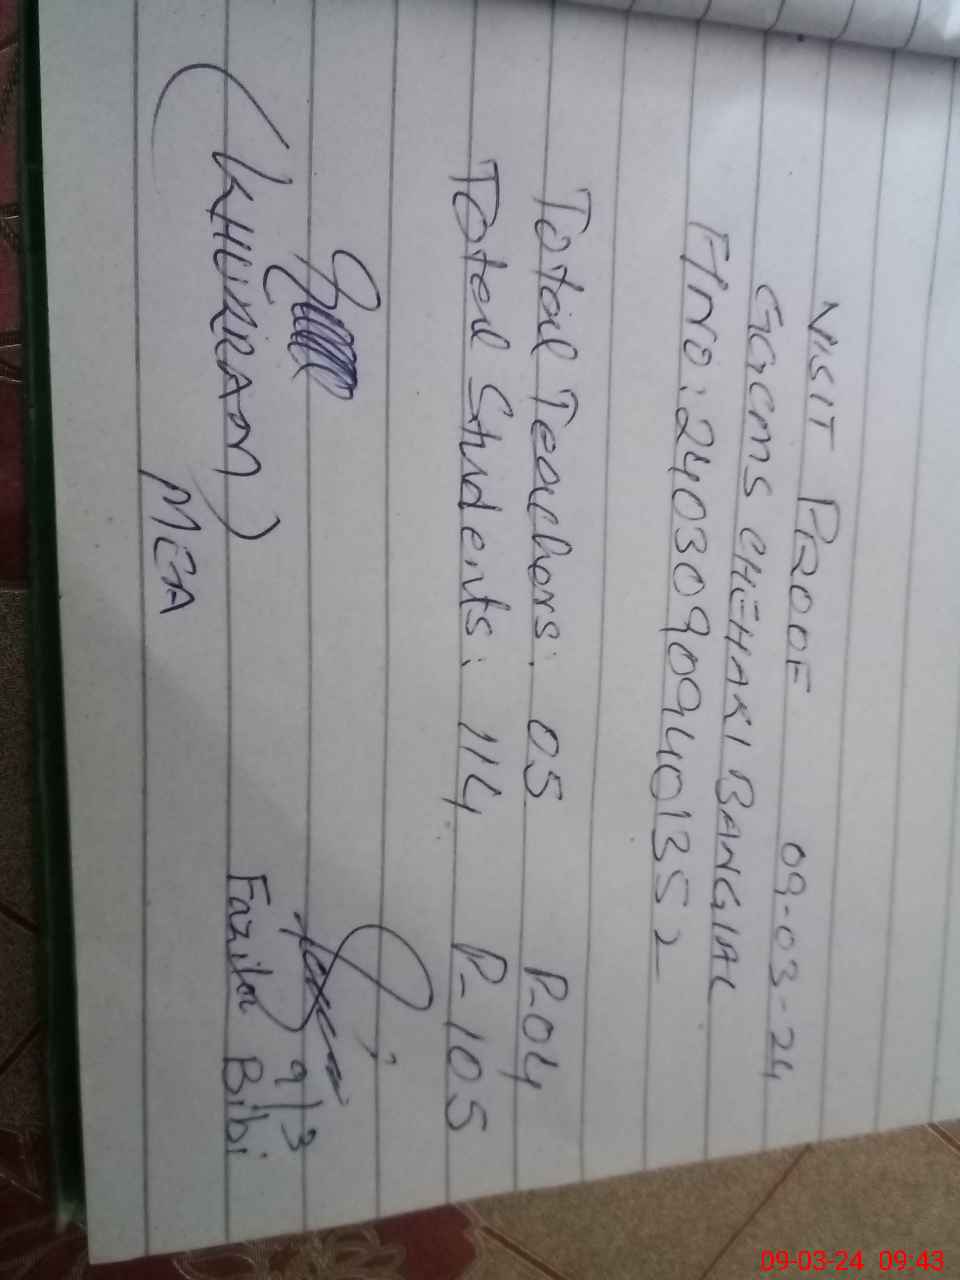 VISIT PROOF 09-03-24
GGCMS CHEHAKI BANGIAL
F/NO: 24030909401352
Total Teachers: 05 P-04
Total Students: 114 P-105
9/3
(KHURRAM) Fazila Bibi
MEA
09-03-24 09:43